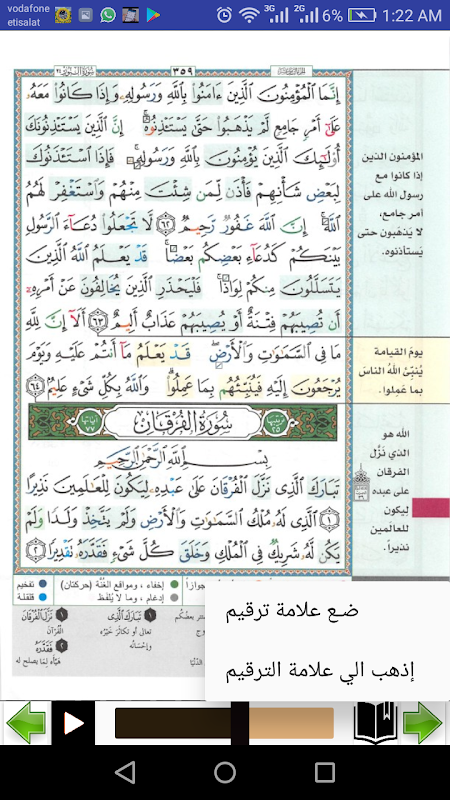 vodafone
etisalat
3G
2G
6%
1:22 AM
٣٥٩
إِنَّمَا الْمُؤْمِنُونَ الَّذِينَ ءَامَنُوا۟ بِاللَّهِ وَرَسُولِهِۦ وَإِذَا كَانُوا۟ مَعَهُۥ
عَلَىٰٓ أَمْرٍ جَامِعٍ لَّمْ يَذْهَبُوا۟ حَتَّىٰ يَسْتَـْٔذِنُوهُ ۚ إِنَّ الَّذِينَ يَسْتَـْٔذِنُونَكَ
أُو۟لَـٰٓئِكَ الَّذِينَ يُؤْمِنُونَ بِاللَّهِ وَرَسُولِهِۦ ۚ فَإِذَا اسْتَـْٔذَنُوكَ
لِبَعْضِ شَأْنِهِمْ فَأْذَن لِّمَن شِئْتَ مِنْهُمْ وَاسْتَغْفِرْ لَهُمُ
اللَّهَ ۚ إِنَّ اللَّهَ غَفُورٌ رَّحِيمٌ ٦٢ لَّا تَجْعَلُوا۟ دُعَآءَ الرَّسُولِ
بَيْنَكُمْ كَدُعَآءِ بَعْضِكُم بَعْضًا ۚ قَدْ يَعْلَمُ اللَّهُ الَّذِينَ
يَتَسَلَّلُونَ مِنكُمْ لِوَاذًا ۚ فَلْيَحْذَرِ الَّذِينَ يُخَالِفُونَ عَنْ أَمْرِهِۦٓ
أَن تُصِيبَهُمْ فِتْنَةٌ أَوْ يُصِيبَهُمْ عَذَابٌ أَلِيمٌ ٦٣ أَلَآ إِنَّ لِلَّهِ
مَا فِى السَّمَـٰوَٰتِ وَالْأَرْضِ ۖ قَدْ يَعْلَمُ مَآ أَنتُمْ عَلَيْهِ وَيَوْمَ
يُرْجَعُونَ إِلَيْهِ فَيُنَبِّئُهُم بِمَا عَمِلُوا۟ ۗ وَاللَّهُ بِكُلِّ شَىْءٍ عَلِيمٌۢ ٦٤
سُورَةُ الْفُرْقَانِ
بِسْمِ اللَّهِ الرَّحْمَـٰنِ الرَّحِيمِ
تَبَارَكَ الَّذِى نَزَّلَ الْفُرْقَانَ عَلَىٰ عَبْدِهِۦ لِيَكُونَ لِلْعَـٰلَمِينَ نَذِيرًا
١ الَّذِى لَهُۥ مُلْكُ السَّمَـٰوَٰتِ وَالْأَرْضِ وَلَمْ يَتَّخِذْ وَلَدًا وَلَمْ
يَكُن لَّهُۥ شَرِيكٌ فِى الْمُلْكِ وَخَلَقَ كُلَّ شَىْءٍ فَقَدَّرَهُۥ تَقْدِيرًا ٢
المؤمنون الذين
إذا كانوا مع
رسول الله على
أمر جامع،
لا يَذهَبون حتى
يَستأذنوه.
يومَ القيامة
يُنَبِّئُ اللهُ الناسَ
بما عَمِلوا.
الله هو
الذي نَزَّل
الفرقان
على عبده
ليكون
للعالمين
نذيراً.
إخفاء ، ومواقع الغُنَّة (حركتان)
تفخيم
إدغام ، وما لا يُلفَظ
قلقلة
١ تَبَارَكَ الَّذِى
تعالى أو تكاثَرَ خَيْرُه
وإحْسَانُه
١ نَزَّلَ الْفُرْقَانَ
القُرْآنَ
٢ فَقَدَّرَهُ
هَيَّأه لِمَا يصلح له
ضع علامة ترقيم
إذهب الي علامة الترقيم